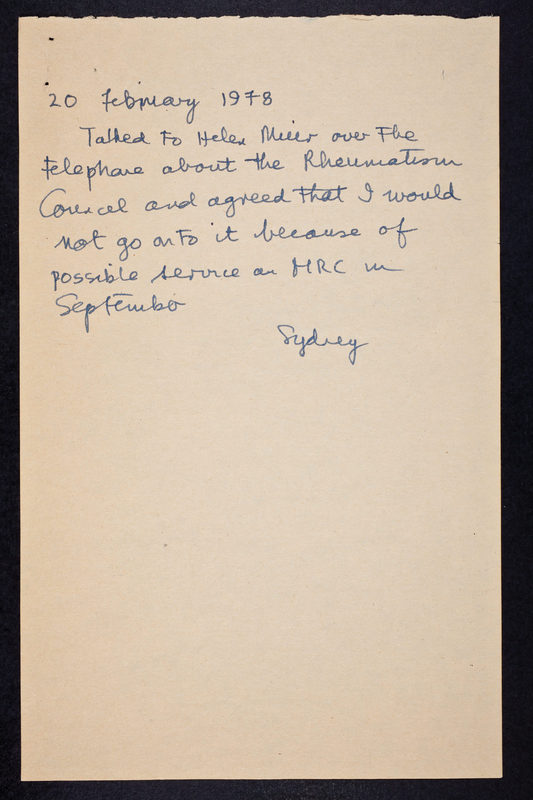 20 February 1978
Talked to Helen Muir over the
telephone about the Rheumatism
Council and agreed that I would
not go onto it because of
possible service on MRC in
September
Sydney